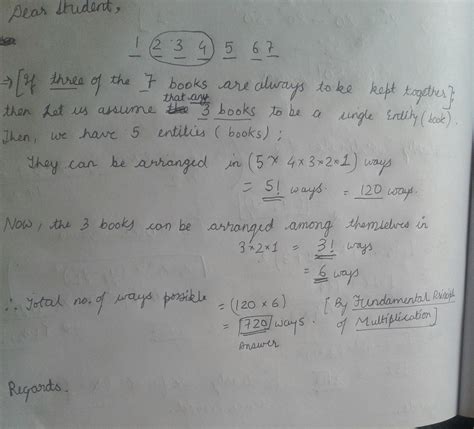 Dear Student,
1 2 3 4 5 6 7
→ [If three of the 7 books are always to be kept together],
then let us assume that any 3 books to be a single entity (book).
Then, we have 5 entities (books);
They can be arranged in (5 × 4 × 3 × 2 × 1) ways
= 5! ways. = 120 ways.
Now, the 3 books can be arranged among themselves in
3 × 2 × 1 = 3! ways
= 6 ways
∴ Total no. of ways possible = (120 × 6) [By Fundamental Principle
= 720 ways. of Multiplication]
Answer
Regards.